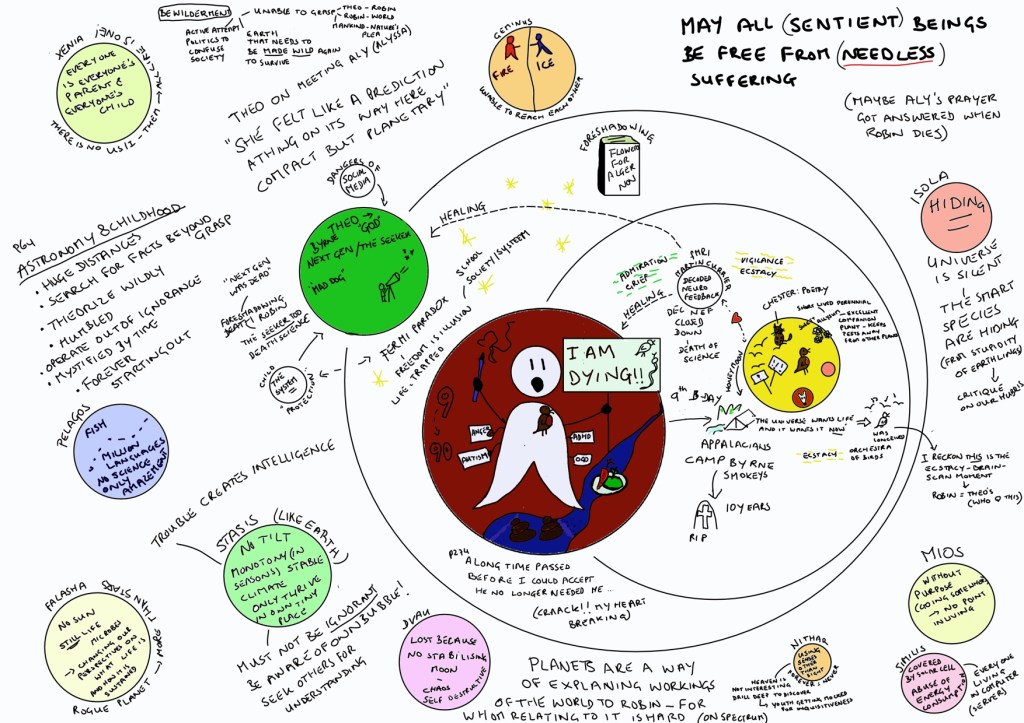 BEWILDERMENT
ACTIVE ATTEMPT
POLITICS TO
CONFUSE
SOCIETY
UNABLE TO GRASP
THEO - ROBIN
ROBIN - WORLD
MANKIND - NATURE'S
PLEA
EARTH
THAT NEEDS TO
BE MADE WILD AGAIN
TO SURVIVE
XENIA
THERE IS NO US IZ - THEM
EVERYONE
IS EVERYONE'S
PARENT &
EVERYONE'S
CHILD
THEO ON MEETING ALY (ALYSSA)
"SHE FELT LIKE A PREDICTION
A THING ON ITS WAY HERE
COMPACT BUT PLANETARY"
GEMINUS
FIRE
ICE
UNABLE TO REACH EACH OTHER
MAY ALL (SENTIENT) BEINGS
BE FREE FROM (NEEDLESS)
SUFFERING
(MAYBE ALY'S PRAYER
GOT ANSWERED WHEN
ROBIN DIES)
FORESHADOWING
FLOWERS
FOR
ALGER
NON
DANGERS OF
SOCIAL
MEDIA
THEO → "GOD"
BYRNE
NEXT GEN/THE SEEKER
"MAD DOG"
HEALING
SCHOOL
SOCIETY/SYSTEEM
P64
ASTRONOMY & CHILDHOOD
• HUGE DISTANCES
• SEARCH FOR FACTS BEYOND
GRASP
• THEORIZE WILDLY
• HUMBLED
• OPERATE OUT OF IGNORANCE
• MYSTIFIED BY TIME
• FOREVER
STARTING OUT
"NEXT GEN
WAS DEAD"
FORESHADOWING
DEATH ROBIN
→ THE SEEKER TOO
DEATH SCIENCE
CHILD
THE
SYSTEM
"PROTECTION"
FERMI PARADOX
FREEDOM IS ILLUSION
LIFE. TRAPPED
ISOLA
HIDING
UNIVERSE
IS SILENT
THE SMART
SPECIES
ARE HIDING
(FROM STUPIDITY
OF EARTHLINGS)
CRITIQUE
ON OUR HUBRIS
ADMIRATION
GRIEF
HEALING
fMRI
MARTIN CURRIER
DECODED
NEURO
FEEDBACK
DEC NEF
CLOSED
DOWN
DEATH OF SCIENCE
VIGILANCE
ECSTACY
CHESTER: POETRY
SHORT LIVED PERENNIAL
SWEET ALYSSUM - EXCELLENT
COMPANION
PLANT - KEEPS
PESTS AWAY
FROM OTHER PLANTS
HONEYMOON
I AM
DYING!!
9
90
ANGER
AUTISM
ADHD
OCD
9th B-DAY
APPALACIANS
CAMP BYRNE
SMOKEYS
10 YEARS
RIP
THE UNIVERSE WANTS LIFE
AND IT WANTS IT NOW
ECSTACY
ORCHESTRA
OF BIRDS
WAS
CONCEIVED
I RECKON THIS IS THE
ECSTACY-BRAIN-
SCAN MOMENT
ROBIN = THEO'S
(WHO ♡ THIS)
PELAGOS
FISH
"MILLION"
LANGUAGES
NO SCIENCE
ONLY
AMAZEMENT
TROUBLE CREATES INTELLIGENCE
STASIS (LIKE EARTH)
NO TILT
MONOTONY (IN
SEASONS) STABLE
CLIMATE
ONLY THRIVE
IN OWN TINY
PLACE
MUST NOT BE IGNORANT
BE AWARE OF OWN BUBBLE!
SEEK OTHERS FOR
UNDERSTANDING
P274
A LONG TIME PASSED
BEFORE I COULD ACCEPT
HE NO LONGER NEEDED ME...
(CRAACK!! MY HEART
BREAKING)
FALASHA
MORE THAN STARS
ROGUE PLANET
NO SUN
STILL LIFE
MICROBES
→ CHANGING OUR
PERSPECTIVES ON
WHAT LIFE IS
AND HOW IT IS
SUSTAINED
DVAU
LOST BECAUSE
NO STABILISING
MOON
→ CHAOS
SELF DESTRUCTIVE
PLANETS ARE A WAY
OF EXPLANING WORKINGS
OF THE WORLD TO ROBIN - FOR
WHOM RELATING TO IT IS HARD (ON SPECTRUM)
NITHAR
USING
SENSES
OTHER THAN
SIGHT
FOREVER = NEVER
HEAVEN IS
NOT INTERESTING
DRILL DEEP TO DISCOVER
→ YOUTH GETTING MOCKED
FOR INQUISITIVENESS
MIOS
WITHOUT
PURPOSE
(GOING SOMEWHERE)
→ NO POINT
IN LIVING
SIMILIS
COVERED
BY SOLAR CELL
ABUSE OF
ENERGY
CONSUMPTION
EVERYONE
LIVING
IN COMPUTER
(SERVER)